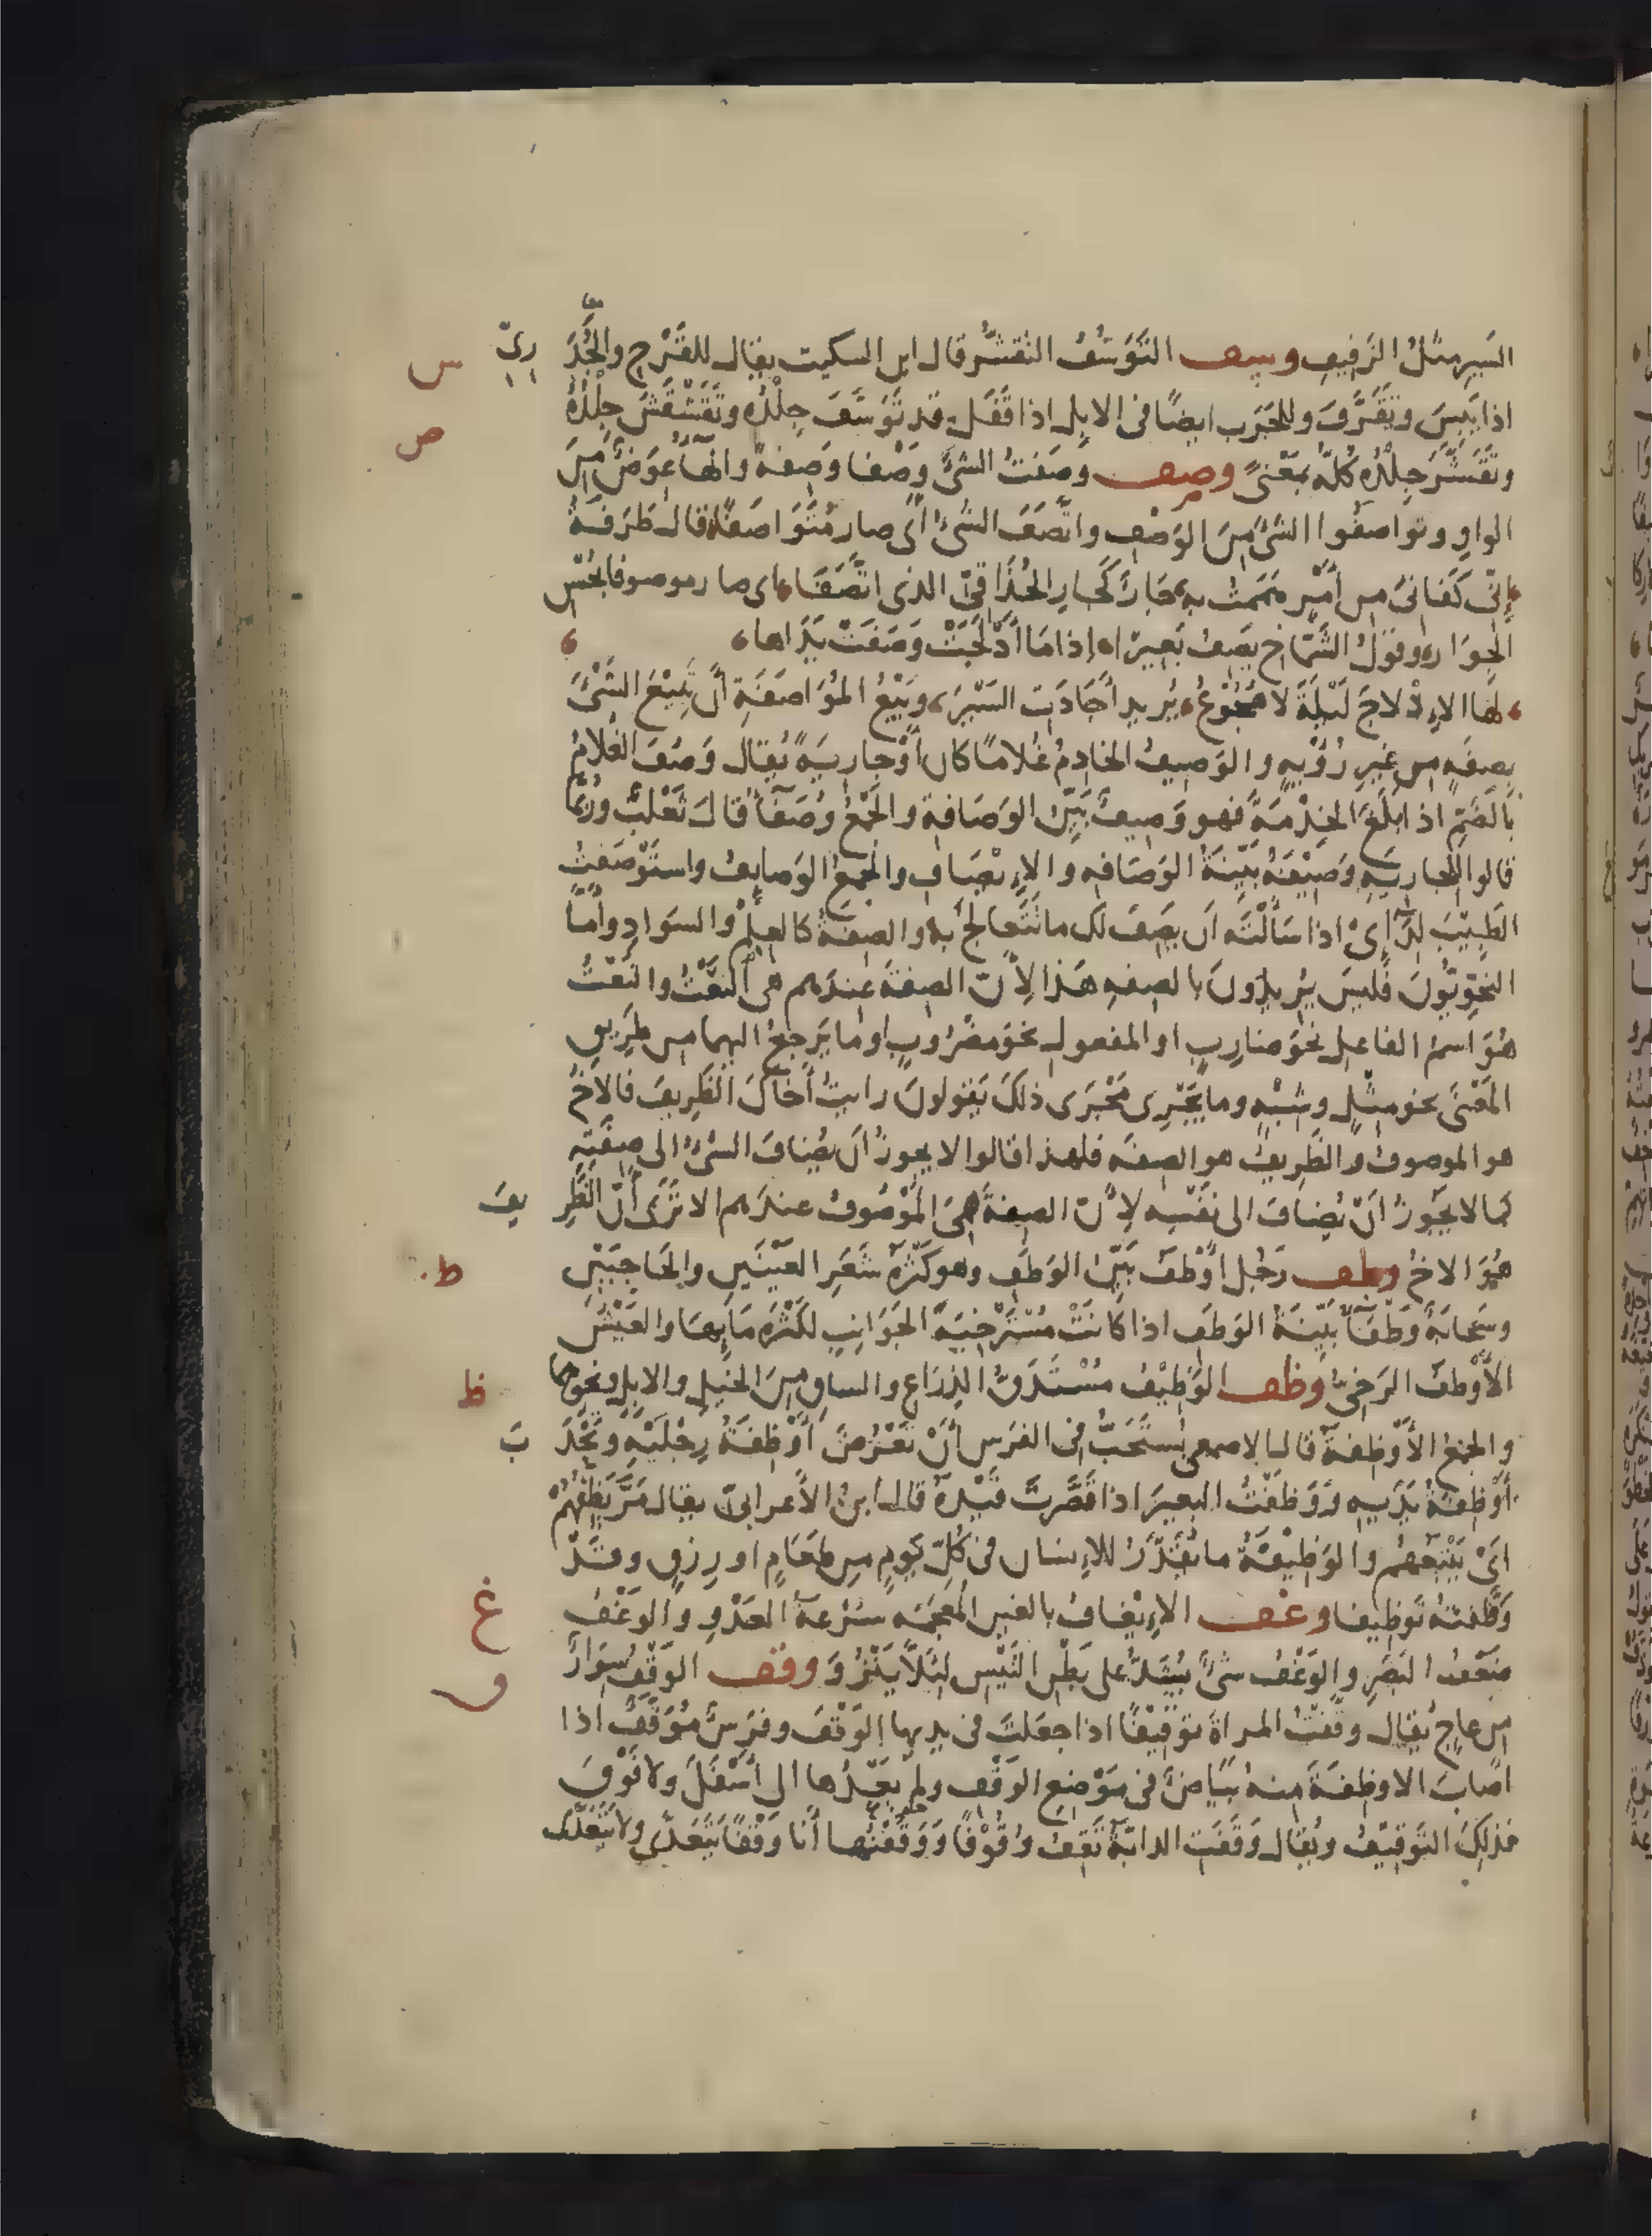 السَيرِ مثلُ الزفيفِ وسف التَوَسُّفُ التقشُّر قال ابن السكيت يقال للقَرْحِ والجُدَرِيّ س
اذا يَبِسَ وتَقَرَّفَ وللجَرَب ايضًا فى الابل اذا قَفَلَ قد تَوَسَّفَ جِلْدُه وتَقَشْقَشَ جِلْدُهُ
وتَقَشَّرَ جِلْدُه كُلّه بمَعْنىً وصف وَصَفتُ الشىَ وَصْفا وَصِفةً والهآءُ عِوَضٌ مِنَ ص
الواوِ وتواصفُوا الشىَ مِنَ الوَصْفِ واتَّصَفَ الشىُ اى صار مُتَوَاصَفًا قال طَرَفَةُ
إنّى كَفَانىَ من أمْرٍ هَمَمتُ به جَارٌ كَجارِ الحُذَاقىّ الذى اتَّصَفَا اى صار موصوفا بحُسْنِ
الجِوَارِ وقولُ الشَمّاخ يصِفُ بَعِيرًا إذا مَا أَدْلَجَتْ وَصَفَتْ يَدَاها
لها الإدْلاجَ لَيْلَةَ لا هُجُوعُ يُريد أَجَادَتِ السَيْرَ وبَيْعُ المُوَاصَفَةِ أن تَبِيْعَ الشَىْءَ
بصِفَهٍ من غيرِ رُؤْيهٍ والوَصيفُ الخادِمُ غُلامًا كان أوْجارِيَةً يُقال وَصُفَ الغلامُ
بالضَمِّ اذا بلَغَ الخِدْمَةَ فهو وَصيفٌ بَيِّنُ الوَصَافةِ والجَمْعُ وُصَفَآءُ قالَ ثَعْلَبٌ ورُبَّما
قالوا للجاريهِ وَصِيْفَةُ بَيِّنَةُ الوَصَافهِ والإيْصَافِ والجَمعُ الوَصايِفُ واستَوْصَفْتُ
الطَبِيْبَ لِدَآئِىْ اذا سَأَلْتَه اَن يصِفَ لك ما تَتَعالَجُ به والصِفَةُ كالعِلمْ والسَوَادِ وأمّا
النحْوِيّونَ فليسَ يُريدُونَ بالصفهِ هَذا لأنّ الصفةَ عندَهم هى النَعْتُ والنَعْتُ
هُوَ اسمُ الفاعلِ نحْوَ ضارِبٍ او المفعولِ نحْوَ مَضْرُوبٍ او ما يَرجِعُ اليهما من طَرِيقِ
المَعْنَى نحو مِثْلٍ وشِبْهٍ وما يَجْرِى مَجْرَى ذلكَ يَقولونَ رايتُ أخَاكَ الظَرِيفَ فالاخُ
هو الموصوفُ والظَرِيفُ هو الصفَه فلهذا قالوا لا يجوزُ اَن يُضافَ الشَىْءُ الى صِفَتِهِ
كما لا يجَوزُ اَنْ يُضافَ الى نفْسِه لأنّ الصفةَ هىَ المَوْصُوفُ عندَهم الا تَرَى أنّ الظَرِيفَ
هُوَ الاخُ وطف رَجُل أوْطَفُ بَيِّنُ الوَطَفِ وهو كَثْرَةُ شَعَرِ العَيْنَينِ والحَاجِبَيْنِ ط
وسَحابَهُ وَطْفَآءُ بيِّنَةُ الوَطَفِ اذا كانَتْ مُسْتَرخيَةَ الجَوَانِبِ لكثْرَهِ مَايِها والعَيْشُ
الأوْطَفُ الرَخِىّ وظف الوَظِيْفُ مُسْتَدَقُّ الذِرَاع والساقِ مِنَ الخَيلِ والابِل ونحوِهما ظ
والجمْعُ الأَوْظِفةُ قال الاصمعى يُستَحَبُّ فى الفرَس أنْ تَعْرُضَ أوْظِفَةُ رِجْلَيْهِ وتَحْدَبَ
أوْظِفَةُ يَدَيهِ وَوَظَفْتُ البعيرَ اذا قَصَّرتَ قَيْدَهُ قال ابنُ الأعرابىّ يقال مَرَّ يَظِفُهُمْ
اىْ يَتْبَعُهُم والوَظِيْفَةُ ما يُقَدَّرُ للإنسان فى كُلّ يَومٍ من طَعَامٍ او رِزقٍ وقَدْ
وَظَّفتُهُ تَوظِيفا وغف الإيْغَافُ بالغين المُعجَمَه سُرْعةُ العَدْوِ والوَغْفُ غ
ضَعْفُ البَصَرِ والوَغْفُ شىْءٌ يُشَدُّ على بَطْنِ التَيْسِ لئلاَّ يَنْزُوَ وقف الوَقْفُ سِوَارٌ ق
من عاجٍ يُقال وقّفتُ المراةَ تَوْقِيْفًا اذا جعَلتَ فى يديها الوَقْفَ وفرَسٌ مُوَقَّفٌ اذا
اصَابَ الاوظِفَةَ مِنهُ بَيَاضٌ فى مَوْضِعِ الوَقْفِ ولم يَعْدُها الى أسْفَلَ ولا فَوْقَ
فذلِكَ التَوقيْفُ ويُقال وَقَفَتِ الدابّةُ تَقِفُ وُقُوْفًا وَوَقَفْتُها أَنا وَقْفًا يَتَعَدّى ولا يَتَعَدَّى